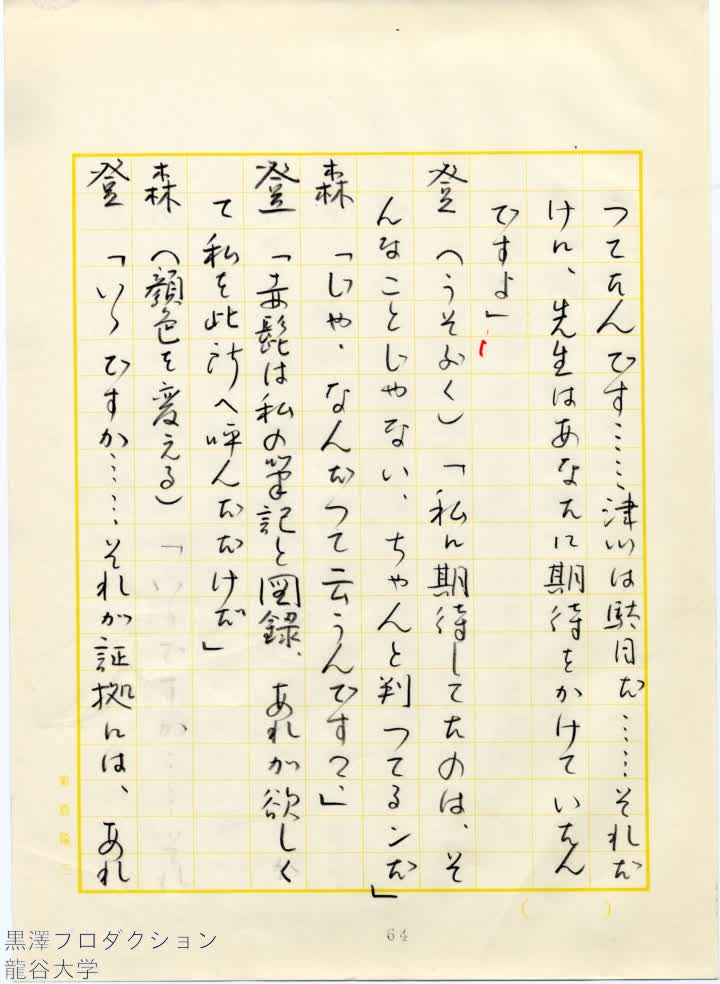 つてたんです……津川は駄目だ……それだ
けに、先生はあなたに期待をかけていたん
ですよ」
登　(うそぶく)「私に期待してたのは、そ
んなことじゃない、ちゃんと判つてるンだ」
森　「じゃ、なんだつて云うんです？」
登　「赤髭は私の筆記と図録、あれが欲しく
て私を此所へ呼んだだけだ」
森　(顔色を変える)
登　「いゝですか……それが証拠には、あれ
64
黒澤プロダクション
龍谷大学